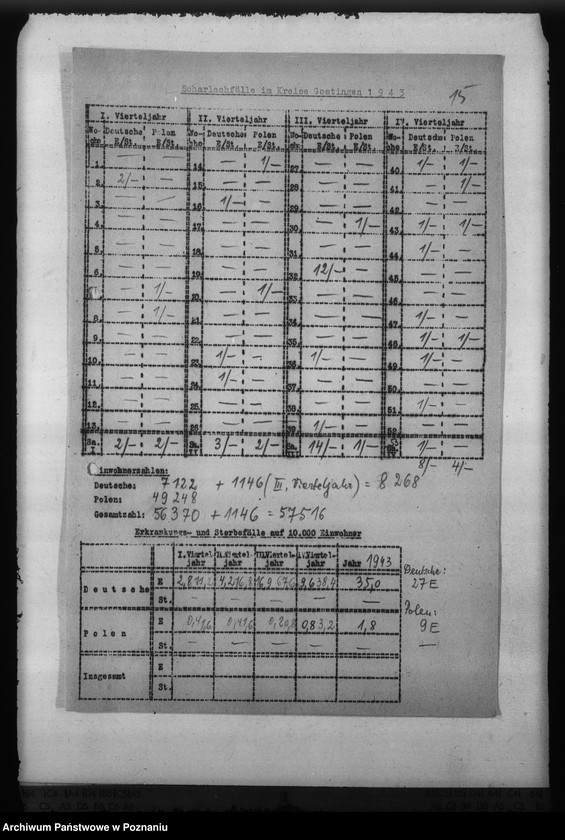 Scharlachfälle im Kreise Gostingen 1943
15
I. Vierteljahr II. Vierteljahr III. Vierteljahr IV. Vierteljahr
Wo- Deutsche Polen Wo- Deutsche Polen Wo- Deutsche Polen Wo- Deutsche Polen
che E/St. E/St. che E/St. E/St. che E/St. E/St. che E/St. E/St.
1. — — 14. — 1/- 27. — — 40. 1/- 1/-
2. 2/- — 15. — — 28. — — 41. — 1/-
3. — — 16. 1/- — 29. — — 42. — —
4. — — 17. — — 30. — 1/- 43. 1/- 1/-
5. — — 18. — — 31. — — 44. 1/- —
6. — — 19. — — 32. 12/- — 45. — —
7. — 1/- 20. — 1/- 33. — — 46. — —
8. — 1/- 34. — — 47. 1/- —
9. — — 22. — — 35. — — 48. 1/- 1/-
10. — — 23. 1/- — 36. 1/- — 49. 1/- —
11. — — 24. 1/- — 37. — — 50. — —
12. — — 25. — — 38. — — 51. 1/- —
13. — — 26. — — 39. 1/- — 52. — —
Sa. I 2/- 2/- Sa. II 3/- 2/- Sa. III 14/- 1/- 53 1/- —
8/- 4/-
Einwohnerzahlen:
Deutsche: 7122 + 1146 (III. Vierteljahr) = 8 268
Polen: 49 248
Gesamtzahl: 56 370 + 1146 = 57516
Erkrankungs- und Sterbefälle auf 10.000 Einwohner
I. Viertel- II. Viertel- III. Viertel- IV. Viertel-
jahr jahr jahr jahr Jahr 1943
Deutsche E 2,8 11,2 4,2 16,8 16,9 67,6 9,6 38,4 35,0
St. — — — — —
Polen E 0,4 1,6 0,4 1,6 0,2 0,8 0,8 3,2 1,8
St. — — — — —
Insgesamt E
St.
Deutsche:
27 E
Polen:
9 E
—
Archiwum Państwowe w Poznaniu